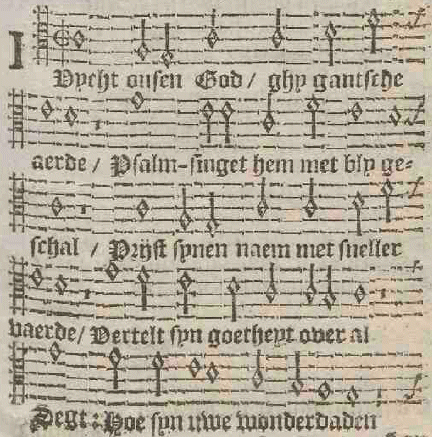 I
Vycht onsen God / ghy gantsche
aerde / Psalm-singet hem met bly ge-
schal / Prijst synen naem met sneller
vaerde / Vertelt syn goetheyt over al
Segt : Hoe syn uwe wonderdaden